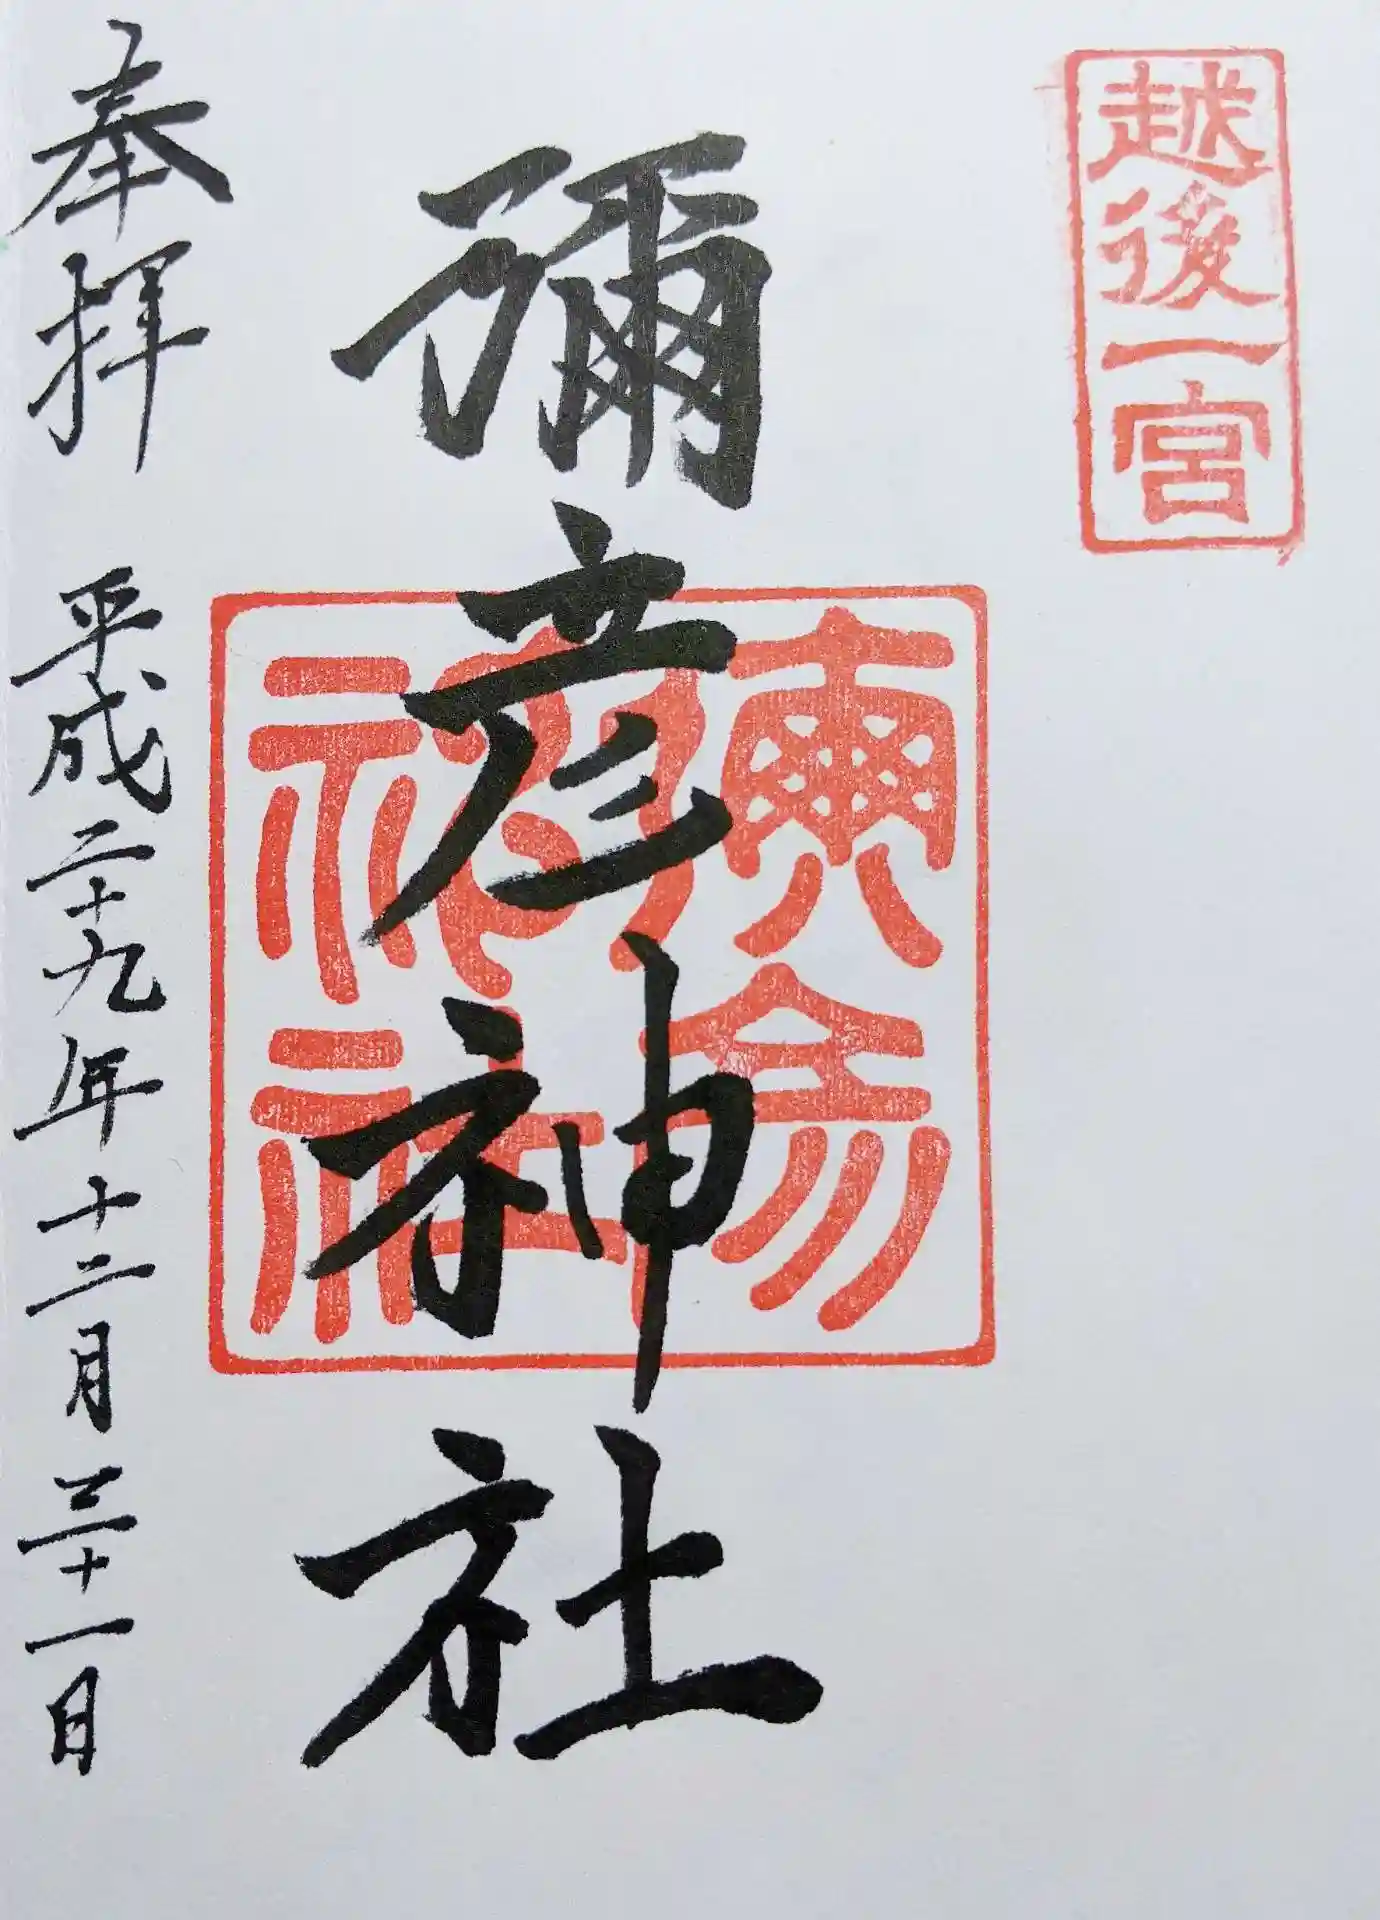 越後一宮
彌彦神社
奉拝 平成二十九年十二月三十一日